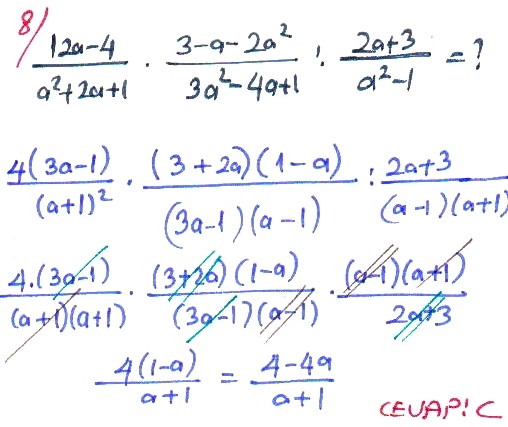 8/ (12a-4)/(a²+2a+1) · (3-a-2a²)/(3a²-4a+1) : (2a+3)/(a²-1) = ?
4(3a-1)/(a+1)² · (3+2a)(1-a)/(3a-1)(a-1) : 2a+3/(a-1)(a+1)
4.(3a-1)/(a+1)(a+1) · (3+2a)(1-a)/(3a-1)(a-1) · (a-1)(a+1)/2a+3
4(1-a)/a+1 = 4-4a/a+1
CEVAP: C